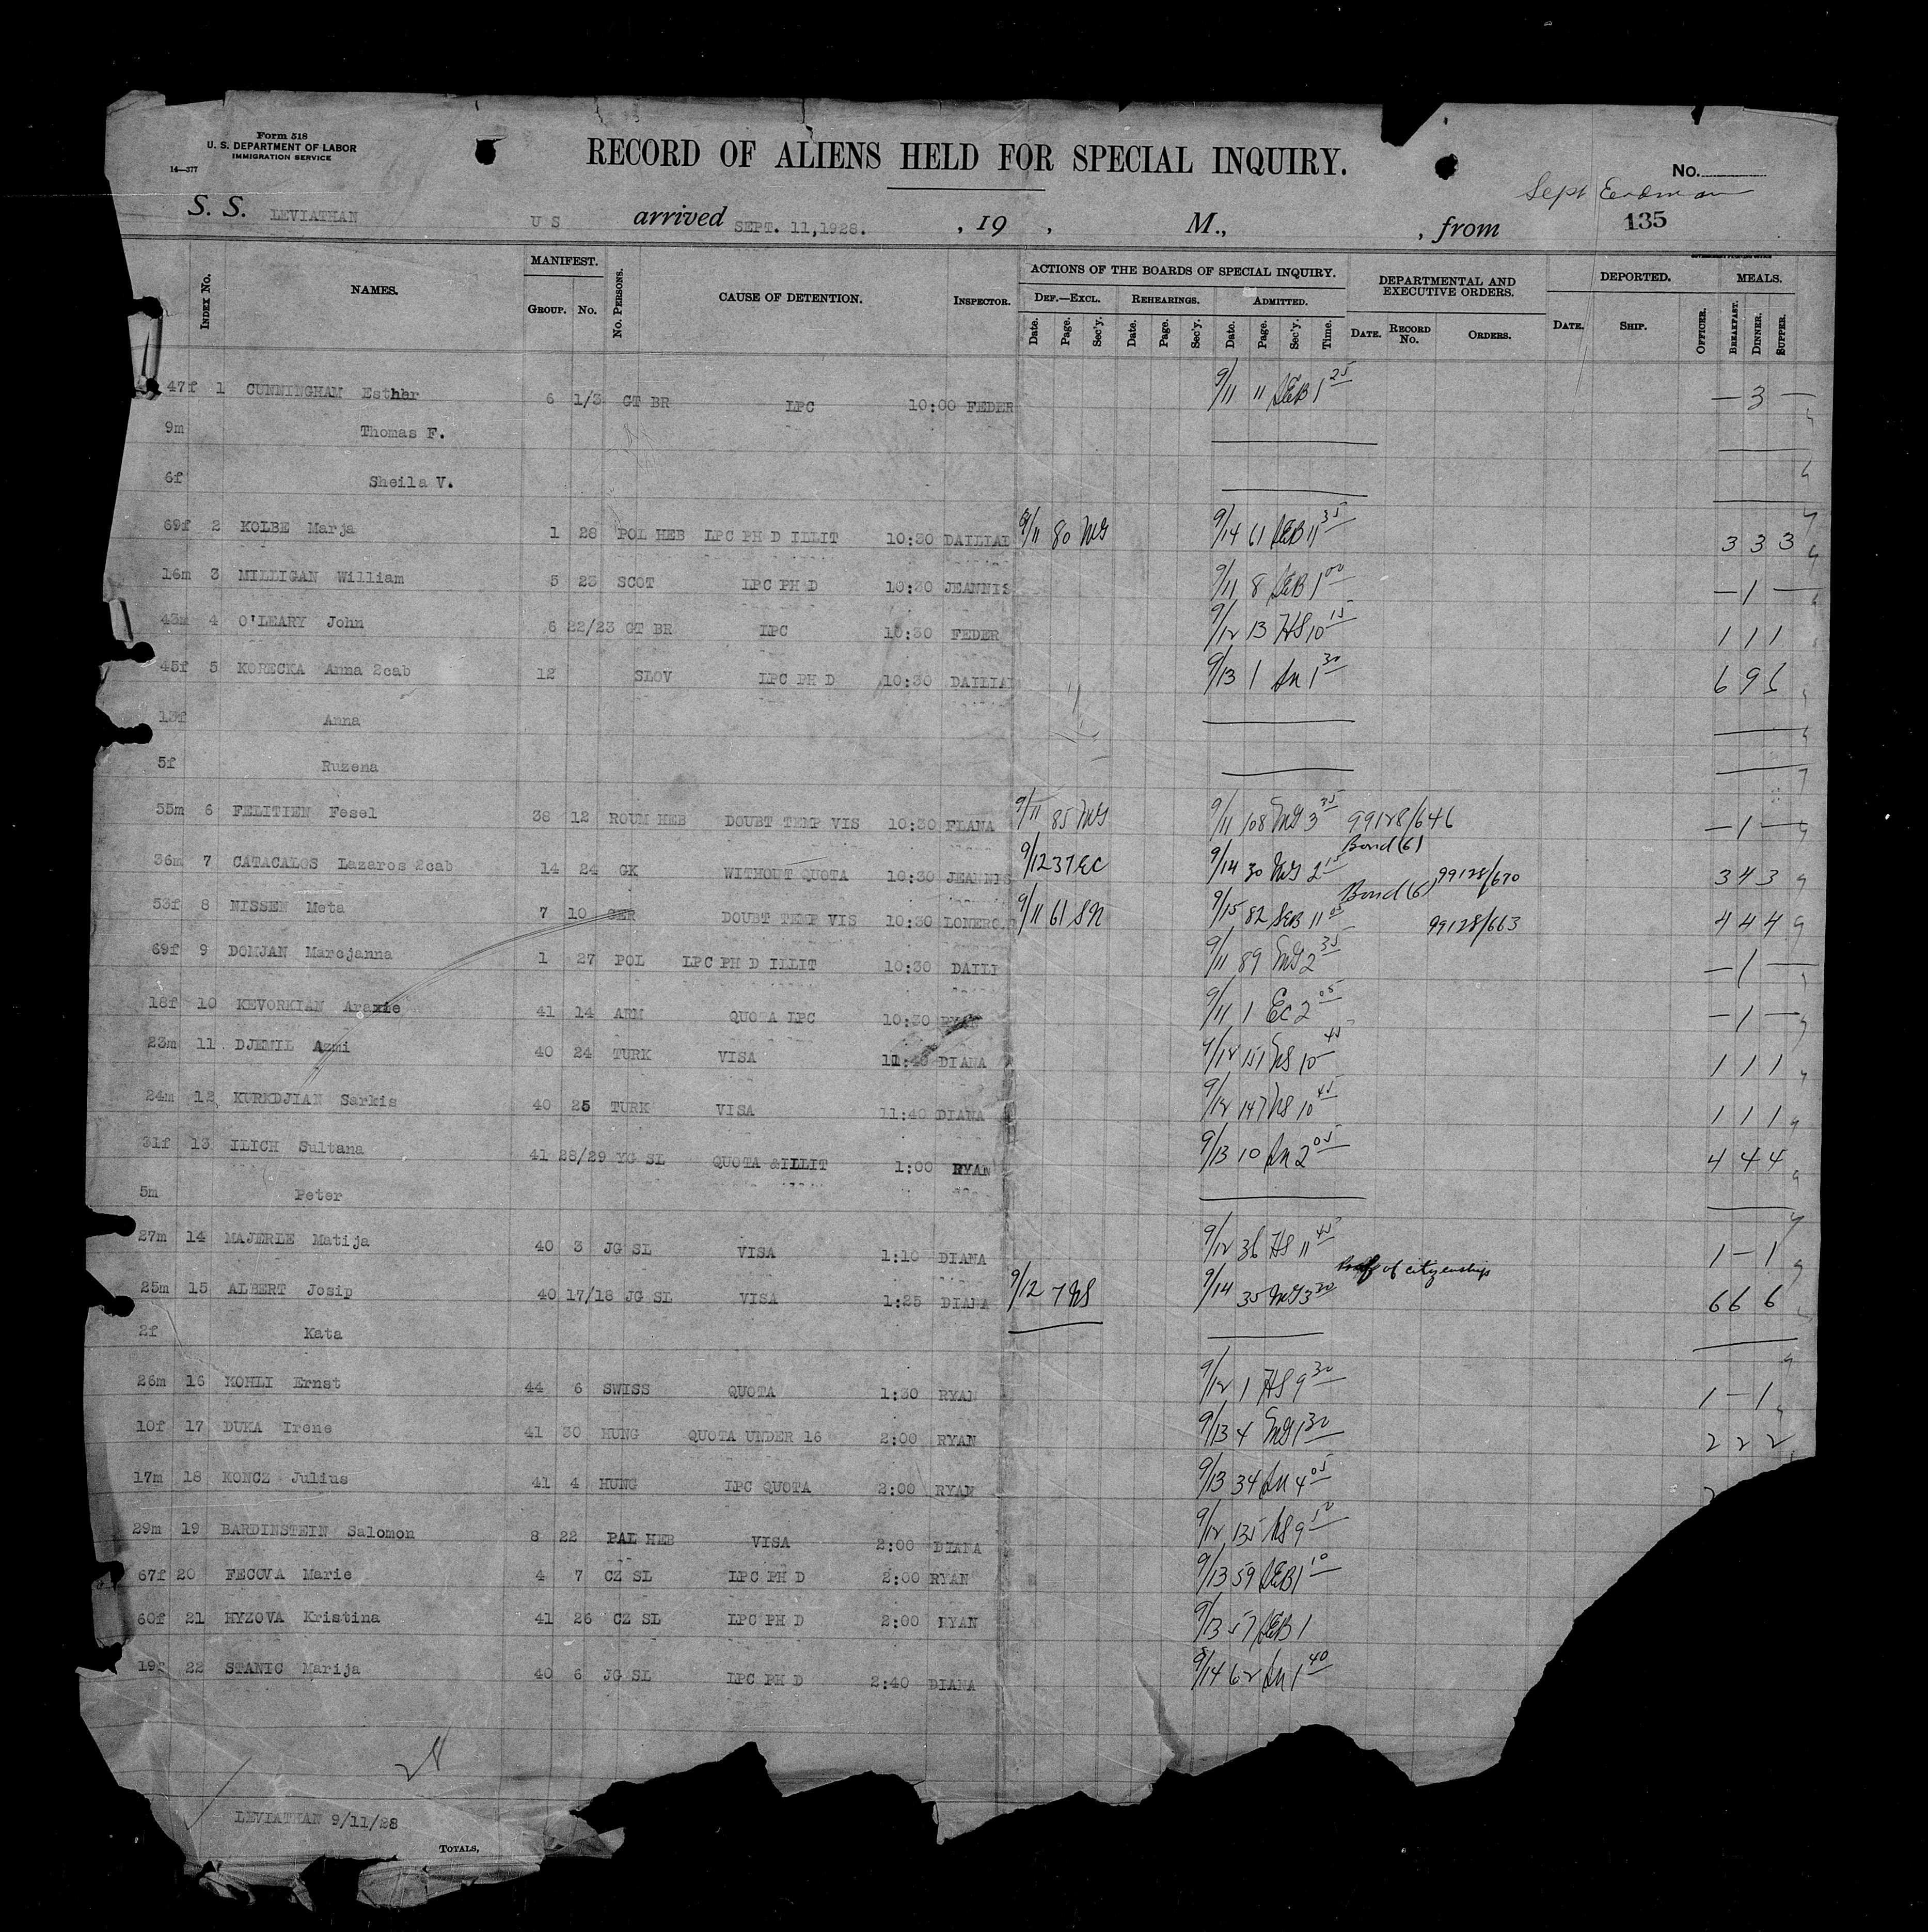 Form 518
U. S. DEPARTMENT OF LABOR
IMMIGRATION SERVICE
14—377
RECORD OF ALIENS HELD FOR SPECIAL INQUIRY.
No.
Sept
135
S. S. LEVIATHAN U S arrived SEPT. 11,1928. , 19 , M., , from
INDEX No. NAMES. MANIFEST. GROUP. No. No. PERSONS. CAUSE OF DETENTION. INSPECTOR. ACTIONS OF THE BOARDS OF SPECIAL INQUIRY. DEF.—EXCL. REHEARINGS. ADMITTED. DEPARTMENTAL AND EXECUTIVE ORDERS. DEPORTED. MEALS.
Date. Page. Sec'y. Date. Page. Sec'y. Date. Page. Sec'y. Time. DATE. RECORD No. ORDERS. DATE. SHIP. OFFICER. BREAKFAST. DINNER. SUPPER.
47f 1 CUNNINGHAM Esther 6 1/3 GT BR LPC 10:00 FEDER 9/11 11 SEB 1 25 — 3 —
9m Thomas F.
6f Sheila V.
69f 2 KOLBE Marja 1 28 POL HEB LPC PH D ILLIT 10:30 DAILIAD 9/11 80 MG 9/14 61 SEB 11 35 3 3 3
16m 3 MILLIGAN William 5 23 SCOT LPC PH D 10:30 JEANNIS 9/11 8 SEB 1 00 — 1 —
43m 4 O'LEARY John 6 22/23 GT BR LPC 10:30 FEDER 9/12 13 HS 10 15 1 1 1
45f 5 KORECKA Anna 2cab 12 SLOV LPC PH D 10:30 DAILIAD 9/13 1 SN 1 30 6 9 6
13f Anna
5f Ruzena
55m 6 FELITIEN Fesel 38 12 ROUM HEB DOUBT TEMP VIS 10:30 DIANA 9/11 85 MG 9/11 108 MG 3 35 99128/646 — 1 —
Bond (6)
36m 7 CATACALOS Lazaros 2cab 14 24 GK WITHOUT QUOTA 10:30 JEANNIS 9/12 37 EC 9/14 30 MG 2 15 99128/670 3 4 3
Bond (6)
53f 8 NISSEN Meta 7 10 GER DOUBT TEMP VIS 10:30 LONERG 9/11 61 SN 9/15 82 SEB 11 05 99128/663 4 4 4
69f 9 DOMJAN Marcjanna 1 27 POL LPC PH D ILLIT 10:30 DAILI 9/11 89 MG 2 35 — 1 —
18f 10 KEVORKIAN Araxie 41 14 ARM QUOTA LPC 10:30 RYAN 9/11 1 EC 2 05 — 1 —
23m 11 DJEMIL Azmi 40 24 TURK VISA 11:40 DIANA 9/12 151 NS 10 45 1 1 1
24m 12 KURKDJIAN Sarkis 40 25 TURK VISA 11:40 DIANA 9/12 147 NS 10 45 1 1 1
31f 13 ILICH Sultana 41 28/29 YG SL QUOTA &ILLIT 1:00 RYAN 9/13 10 SN 2 05 4 4 4
5m Peter
27m 14 MAJERLE Matija 40 3 JG SL VISA 1:10 DIANA 9/12 36 HS 11 45 1 — 1
of citizenship
25m 15 ALBERT Josip 40 17/18 JG SL VISA 1:25 DIANA 9/12 7 NS 9/14 35 MG 3 20 6 6 6
2f Kata
26m 16 KOHLI Ernst 44 6 SWISS QUOTA 1:30 RYAN 9/12 1 HS 9 30 1 — 1
10f 17 DUKA Irene 41 30 HUNG QUOTA UNDER 16 2:00 RYAN 9/13 4 MG 1 30 2 2 2
17m 18 KONCZ Julius 41 4 HUNG LPC QUOTA 2:00 RYAN 9/13 34 SN 4 05
29m 19 BARDINSTEIN Salomon 8 22 PAL HEB VISA 2:00 DIANA 9/12 135 NS 9 50
67f 20 FECOVA Marie 4 7 CZ SL LPC PH D 2:00 RYAN 9/13 59 SEB 1 10
60f 21 HYZOVA Kristina 41 26 CZ SL LPC PH D 2:00 RYAN 9/13 57 SEB 1
19f 22 STANIC Marija 40 6 JG SL LPC PH D 2:40 DIANA 9/14 62 SN 1 40
LEVIATHAN 9/11/28
TOTALS,